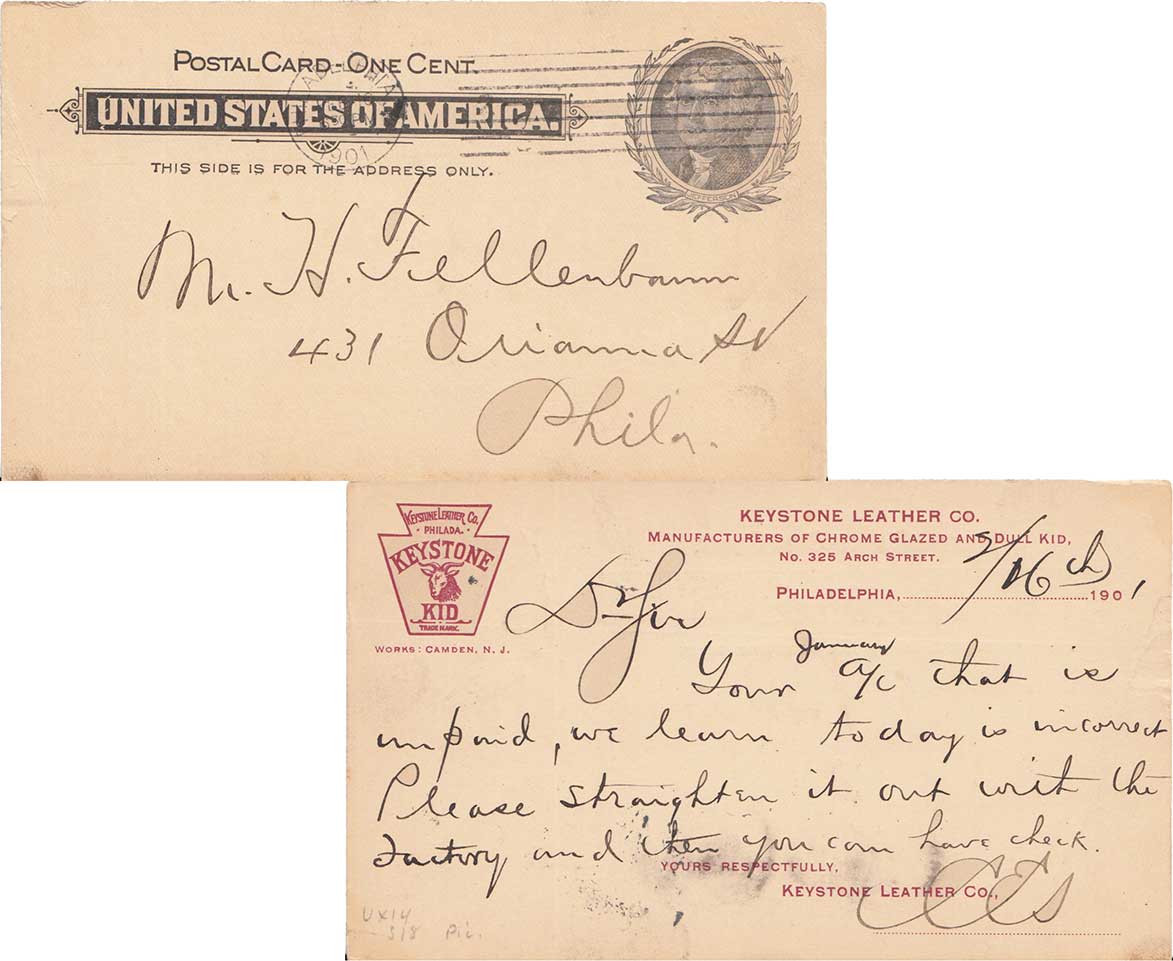 POSTAL CARD - ONE CENT.
UNITED STATES OF AMERICA.
THIS SIDE IS FOR THE ADDRESS ONLY.
1901
JEFFERSON
Mr. H. Fellenbaum
431 Orianna St
Phila.
KEYSTONE LEATHER CO.
PHILADA.
KEYSTONE
KID
TRADE MARK.
WORKS: CAMDEN, N. J.
KEYSTONE LEATHER CO.
MANUFACTURERS OF CHROME GLAZED AND DULL KID,
NO. 325 ARCH STREET.
PHILADELPHIA, 2/16th 1901
Dr Sir
January
Your a/c that is
unpaid, we learn today is incorrect
Please straighten it out with the
factory and then you can have check.
YOURS RESPECTFULLY,
KEYSTONE LEATHER CO.,
UX14
S18 Pic.